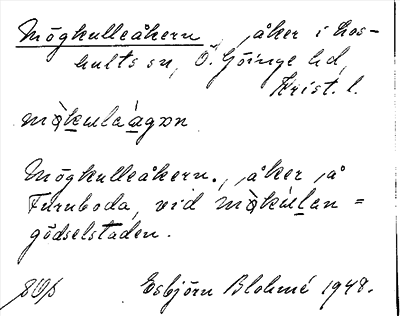 Mögkulleåkern, åker i Los-
hults sn, Ö. Göinge hd,
Krist. l.
mò̱kulaágɔn
Mögkulleåkern, åker å
Furuboda, vid mò̱kúlan =
gödselstaden.
Esbjörn Blohmé 1948.